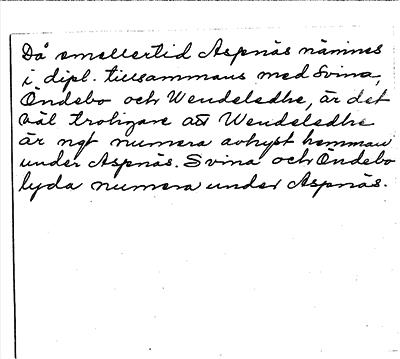 Då emellertid Aspnäs nämnes
i dipl. tillsammans med Svina,
Öndebo och Wendeledhe, är det
väl troligare att Wendeledhe
är ngt numera avhyst hemman
under Aspnäs. Svina och Öndebo
lyda numera under Aspnäs.